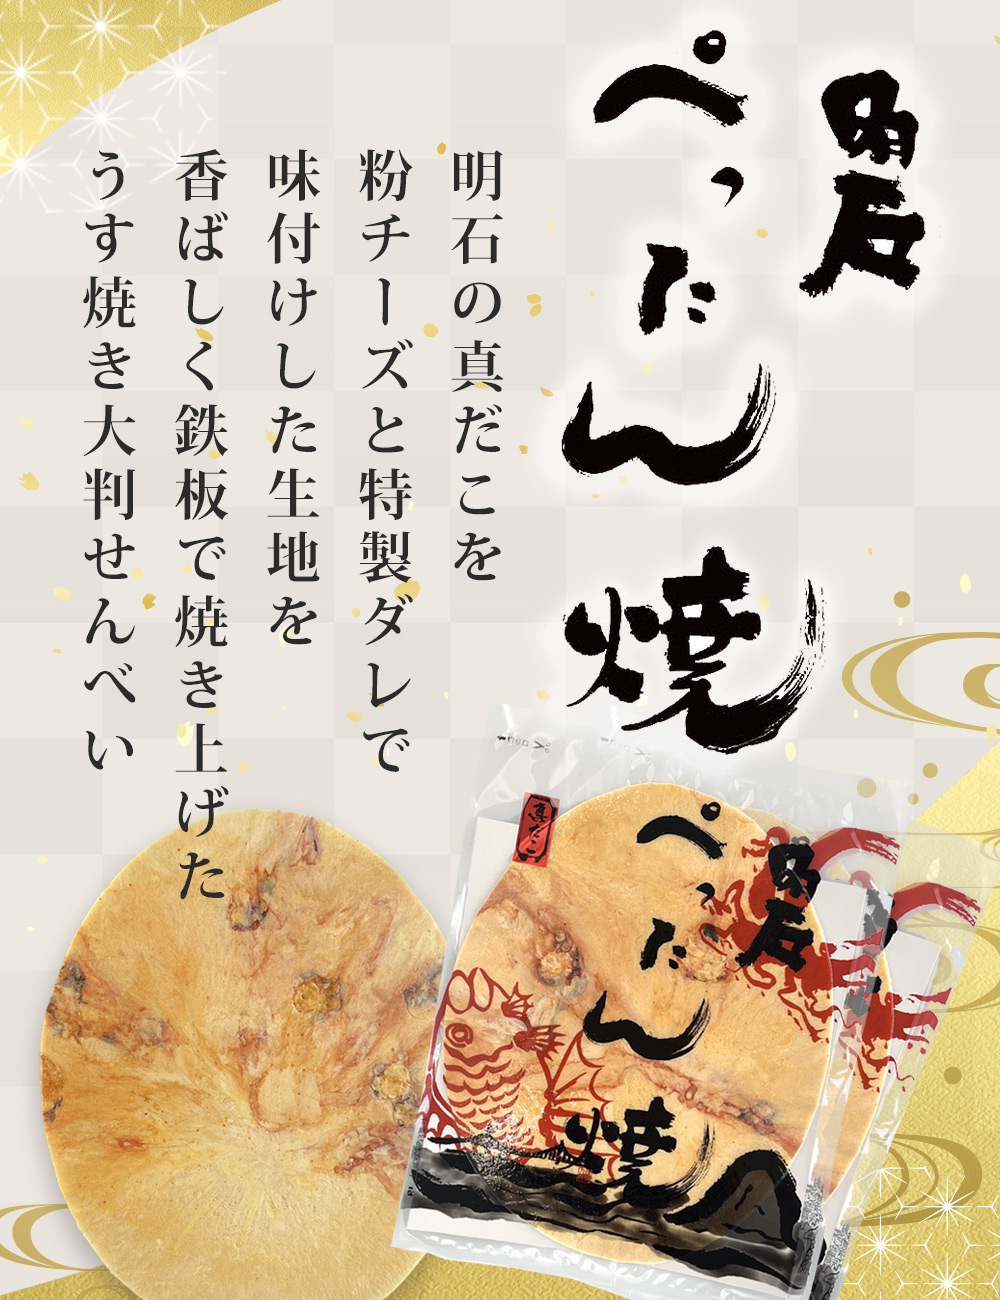 明石
ぺったん焼
明石の真だこを
粉チーズと特製ダレで
味付けした生地を
香ばしく鉄板で焼き上げた
うす焼き大判せんべい
真だこ
明石
ぺったん焼